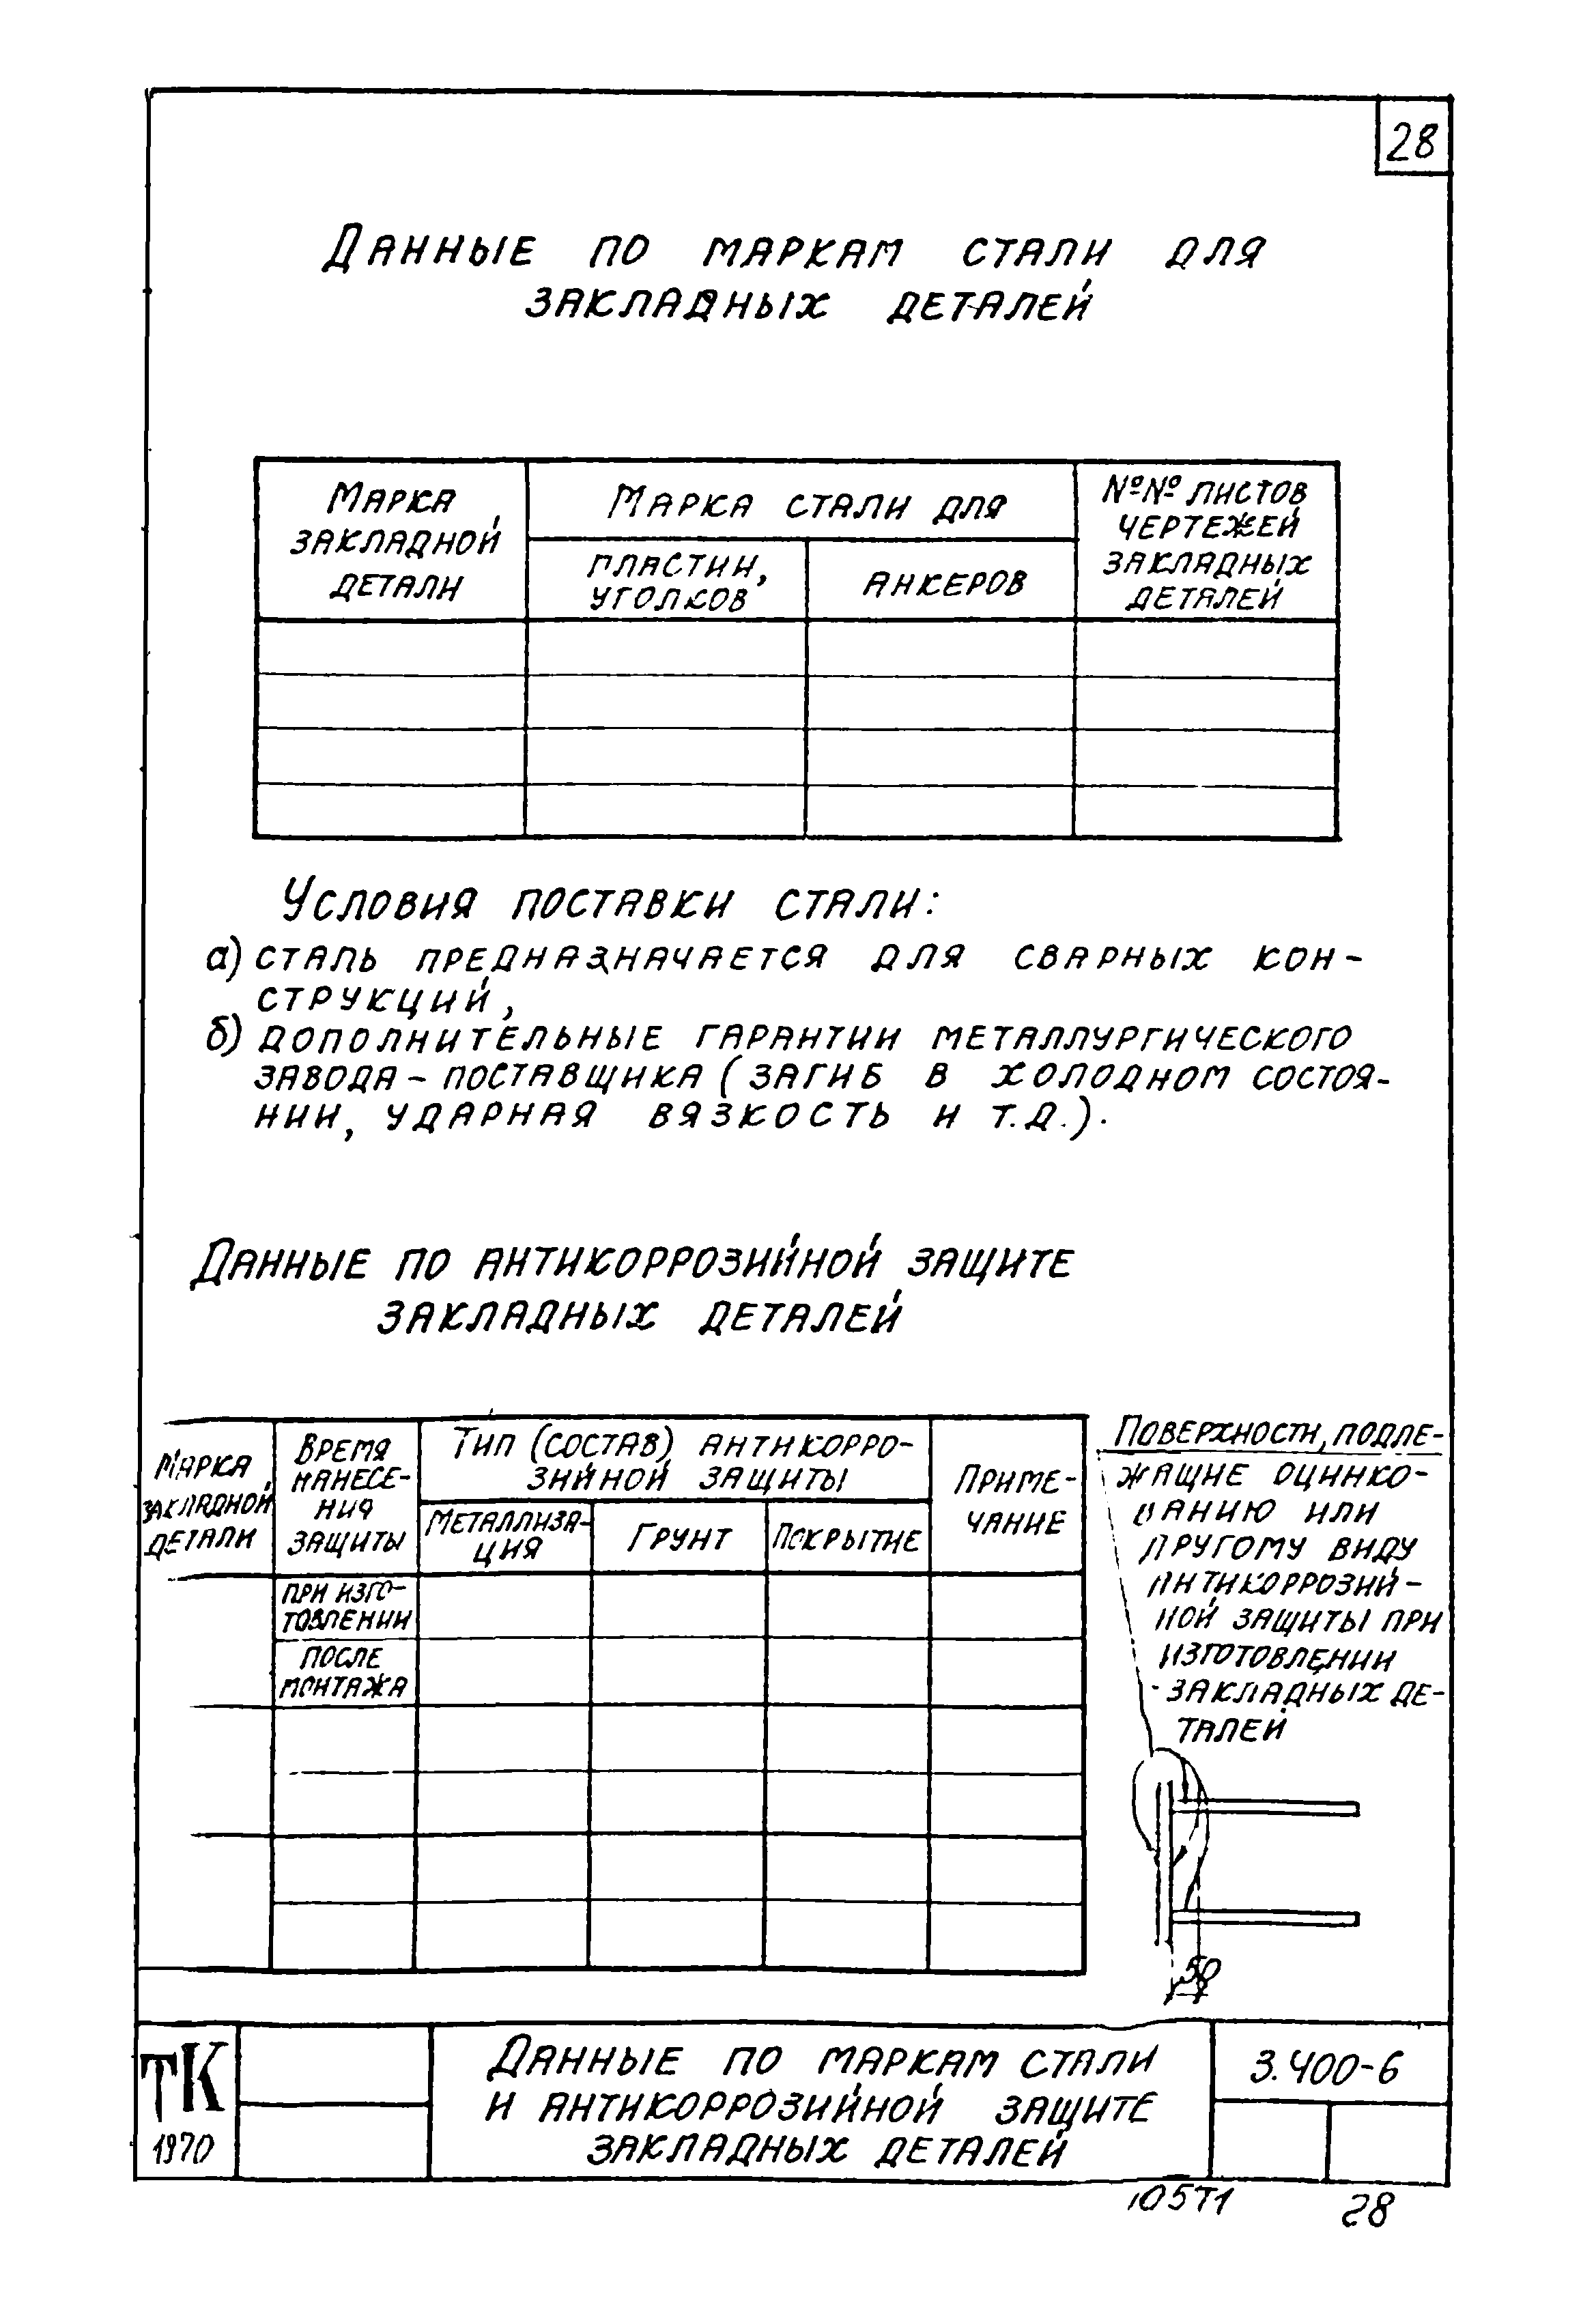 28
Данные по маркам стали для
закладных деталей
Марка
закладной
детали
Марка стали для
пластин,
уголков
анкеров
№№ листов
чертежей
закладных
деталей
Условия поставки стали:
а) сталь предназначается для сварных кон-
струкций,
б) дополнительные гарантии металлургического
завода-поставщика (загиб в холодном состоя-
нии, ударная вязкость и т.д.).
Данные по антикоррозийной защите
закладных деталей
Марка
закладной
детали
Время
нанесе-
ния
защиты
Тип (состав) антикорро-
зийной защиты
Металлиза-
ция
Грунт
Покрытие
Приме-
чание
при изго-
товлении
после
монтажа
Поверхности, подле-
жащие оцинко-
ванию или
другому виду
антикоррозий-
ной защиты при
изготовлении
закладных де-
талей
50
ТК
1970
Данные по маркам стали
и антикоррозийной защите
закладных деталей
3.400-6
10571
28